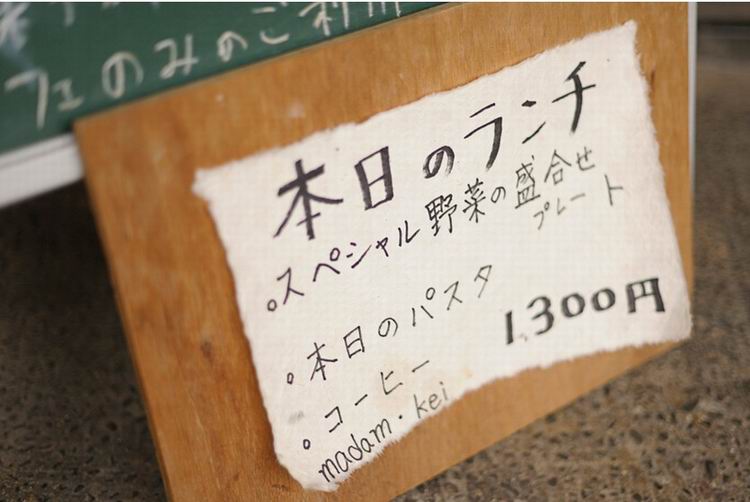 フェのみのご利用
本日のランチ
。スペシャル野菜の盛合せ
プレート
。本日のパスタ
。コーヒー
1,300円
madam・kei